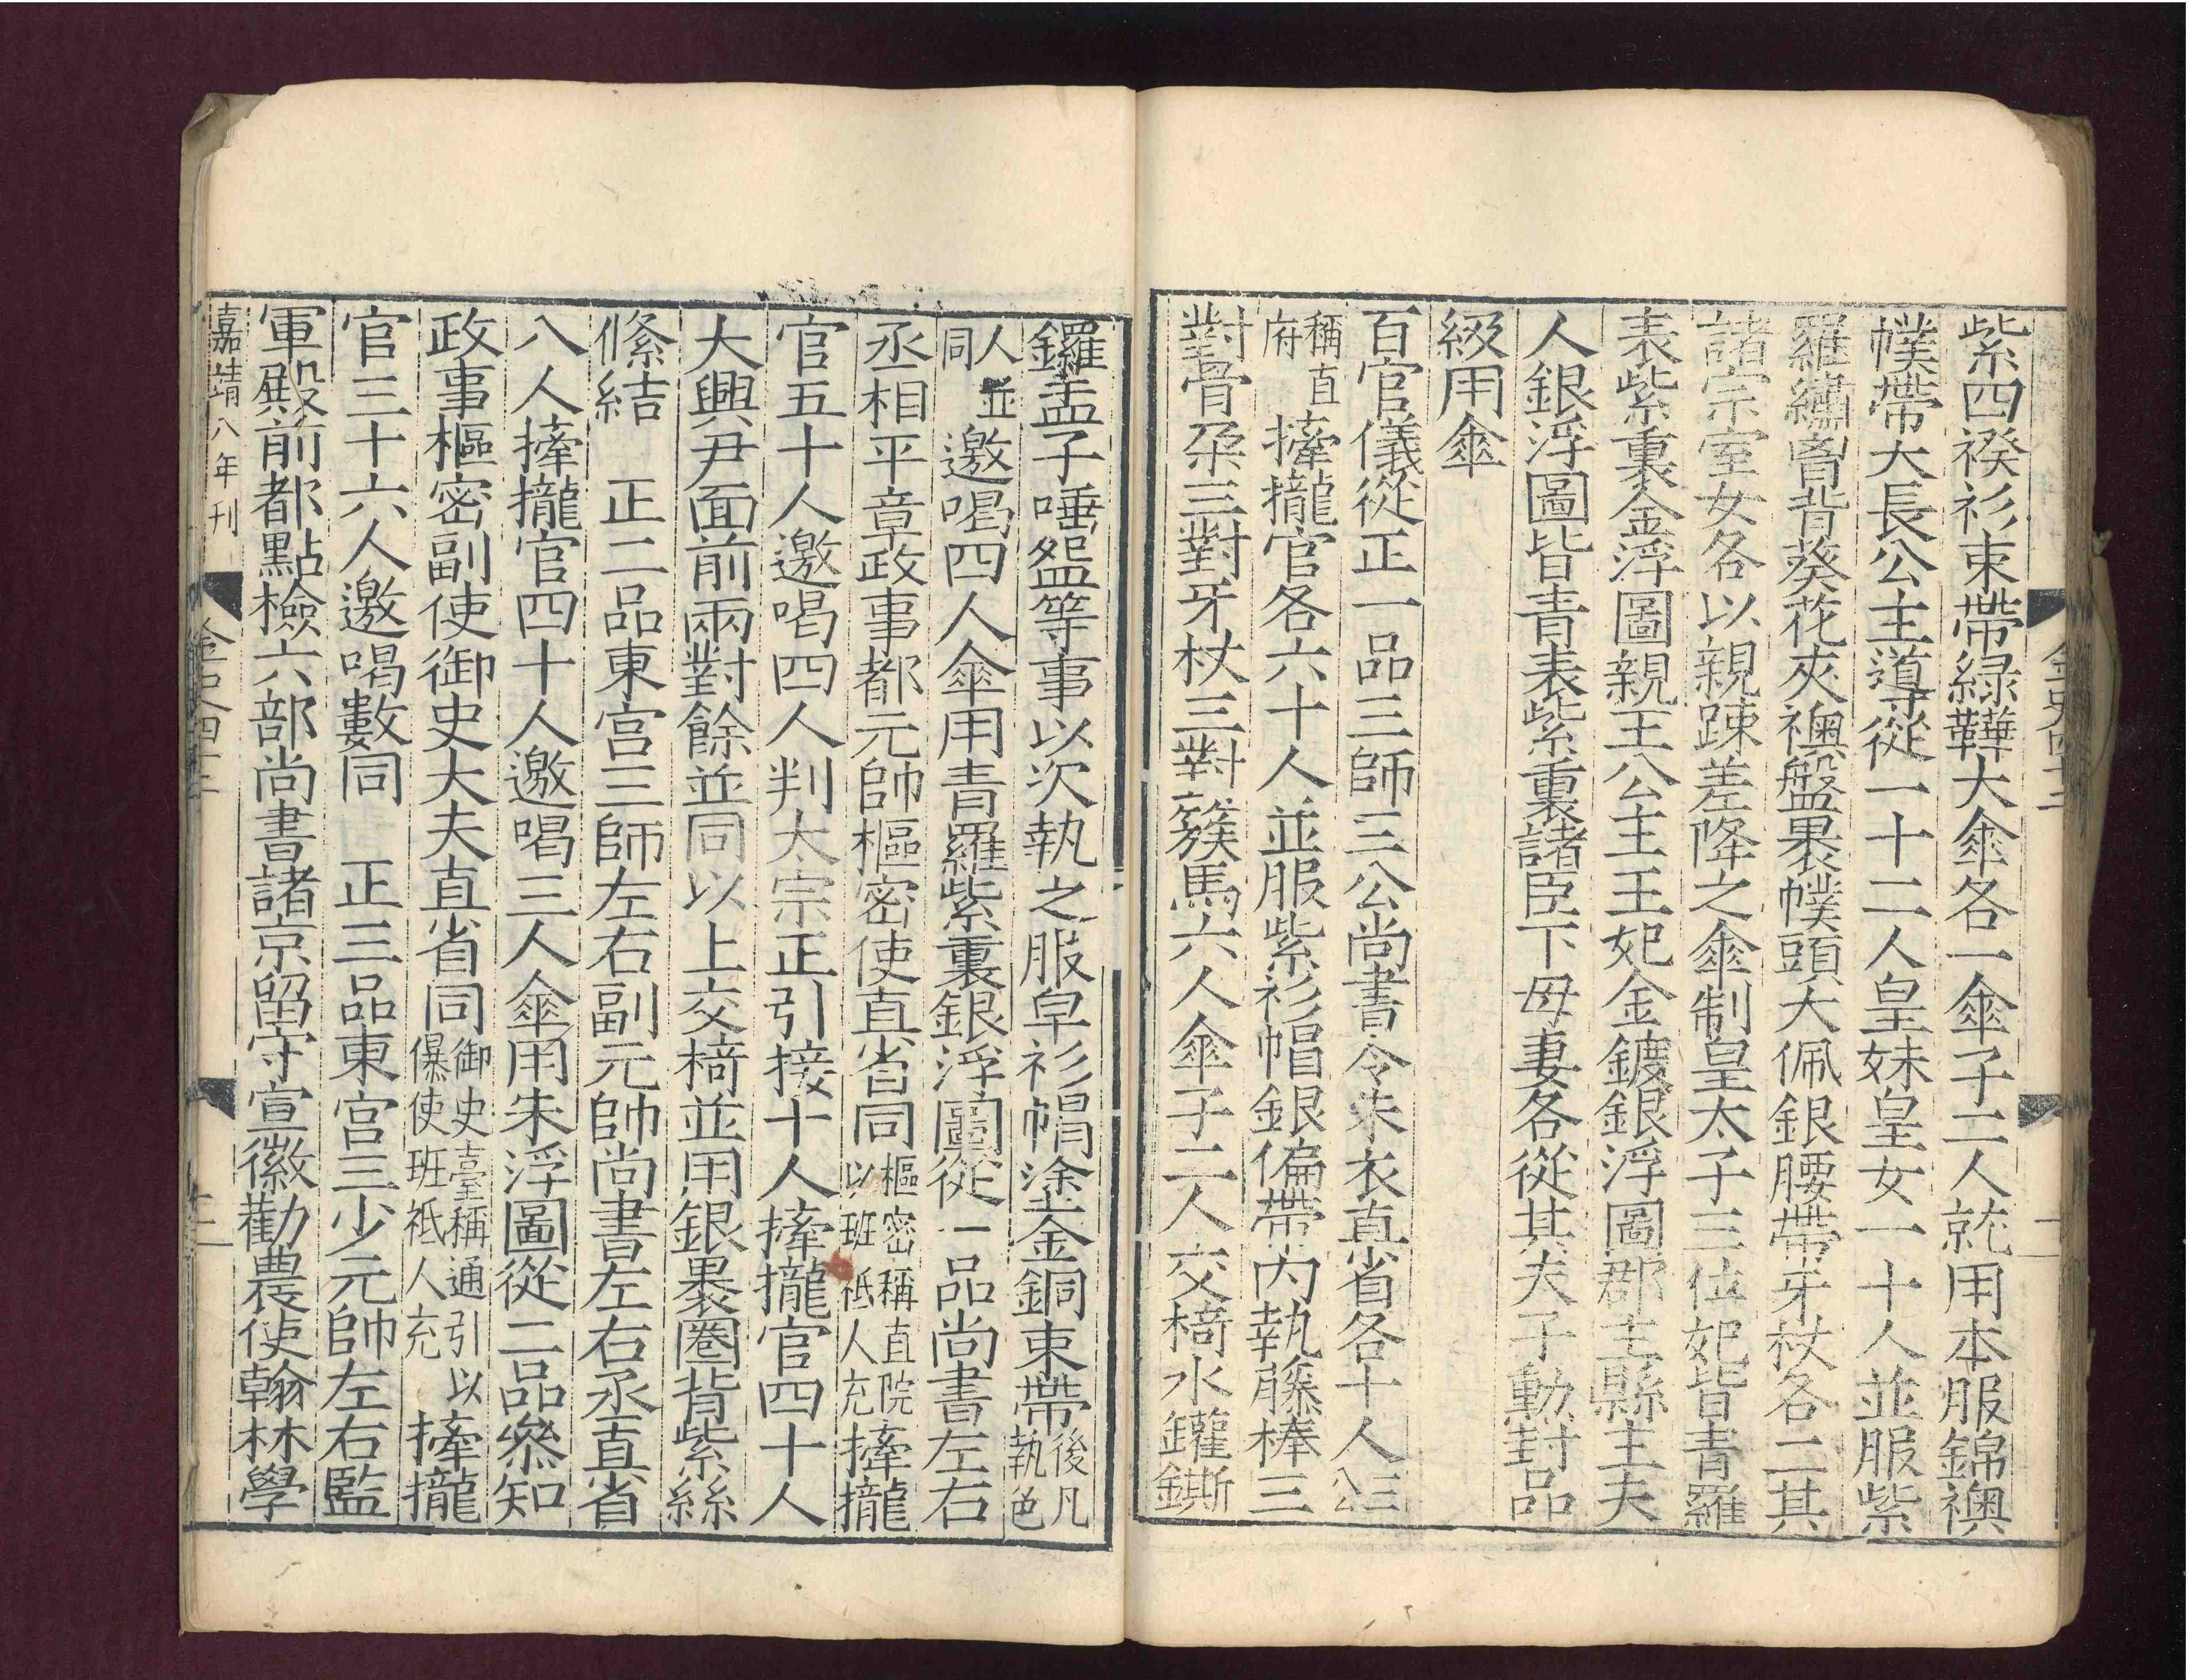 紫四䙆衫束帶綠鞾大傘各一傘子二人就用本服錦襖
幞帶大長公主導從一十二人皇妹皇女一十人並服紫
羅繡胷背葵花夾襖盤裹幞頭大佩銀腰帶牙杖各二其
諸宗室女各以親踈差降之傘制皇太子三位妃皆青羅
表紫裏金浮圖親王公主王妃金鍍銀浮圖郡主縣主夫
人銀浮圖皆青表紫裏諸臣下母妻各從其夫子勳封品
級用傘
百官儀從正一品三師三公尚書令朱衣直省各十人三公
稱直府㧘攏官各六十人並服紫衫帽銀偏帶內執藤棒三
對骨朵三對牙杖三對簇馬六人傘子二人交椅水鑵鐁
鑼盂子唾盌等事以次執之服皁衫帽塗金銅束帶後凡執色
人並同邀喝四人傘用青羅紫裏銀浮圖從一品尚書左右
丞相平章政事都元帥樞密使直省同樞密稱直院以班祗人充㧘攏
官五十人邀喝四人判大宗正引接十人㧘攏官四十人
大興尹面前兩對餘並同以上交椅並用銀裹圈背紫絲
絛結　正二品東宮三師左右副元帥尚書左右丞直省
八人㧘攏官四十人邀喝三人傘用朱浮圖從二品叅知
政事樞密副使御史大夫直省同御史臺稱通引以儤使班祗人充㧘攏
官三十六人邀喝數同　正三品東宮三少元帥左右監
軍殿前都點檢六部尚書諸京留守宣徽勸農使翰林學
嘉靖八年刊